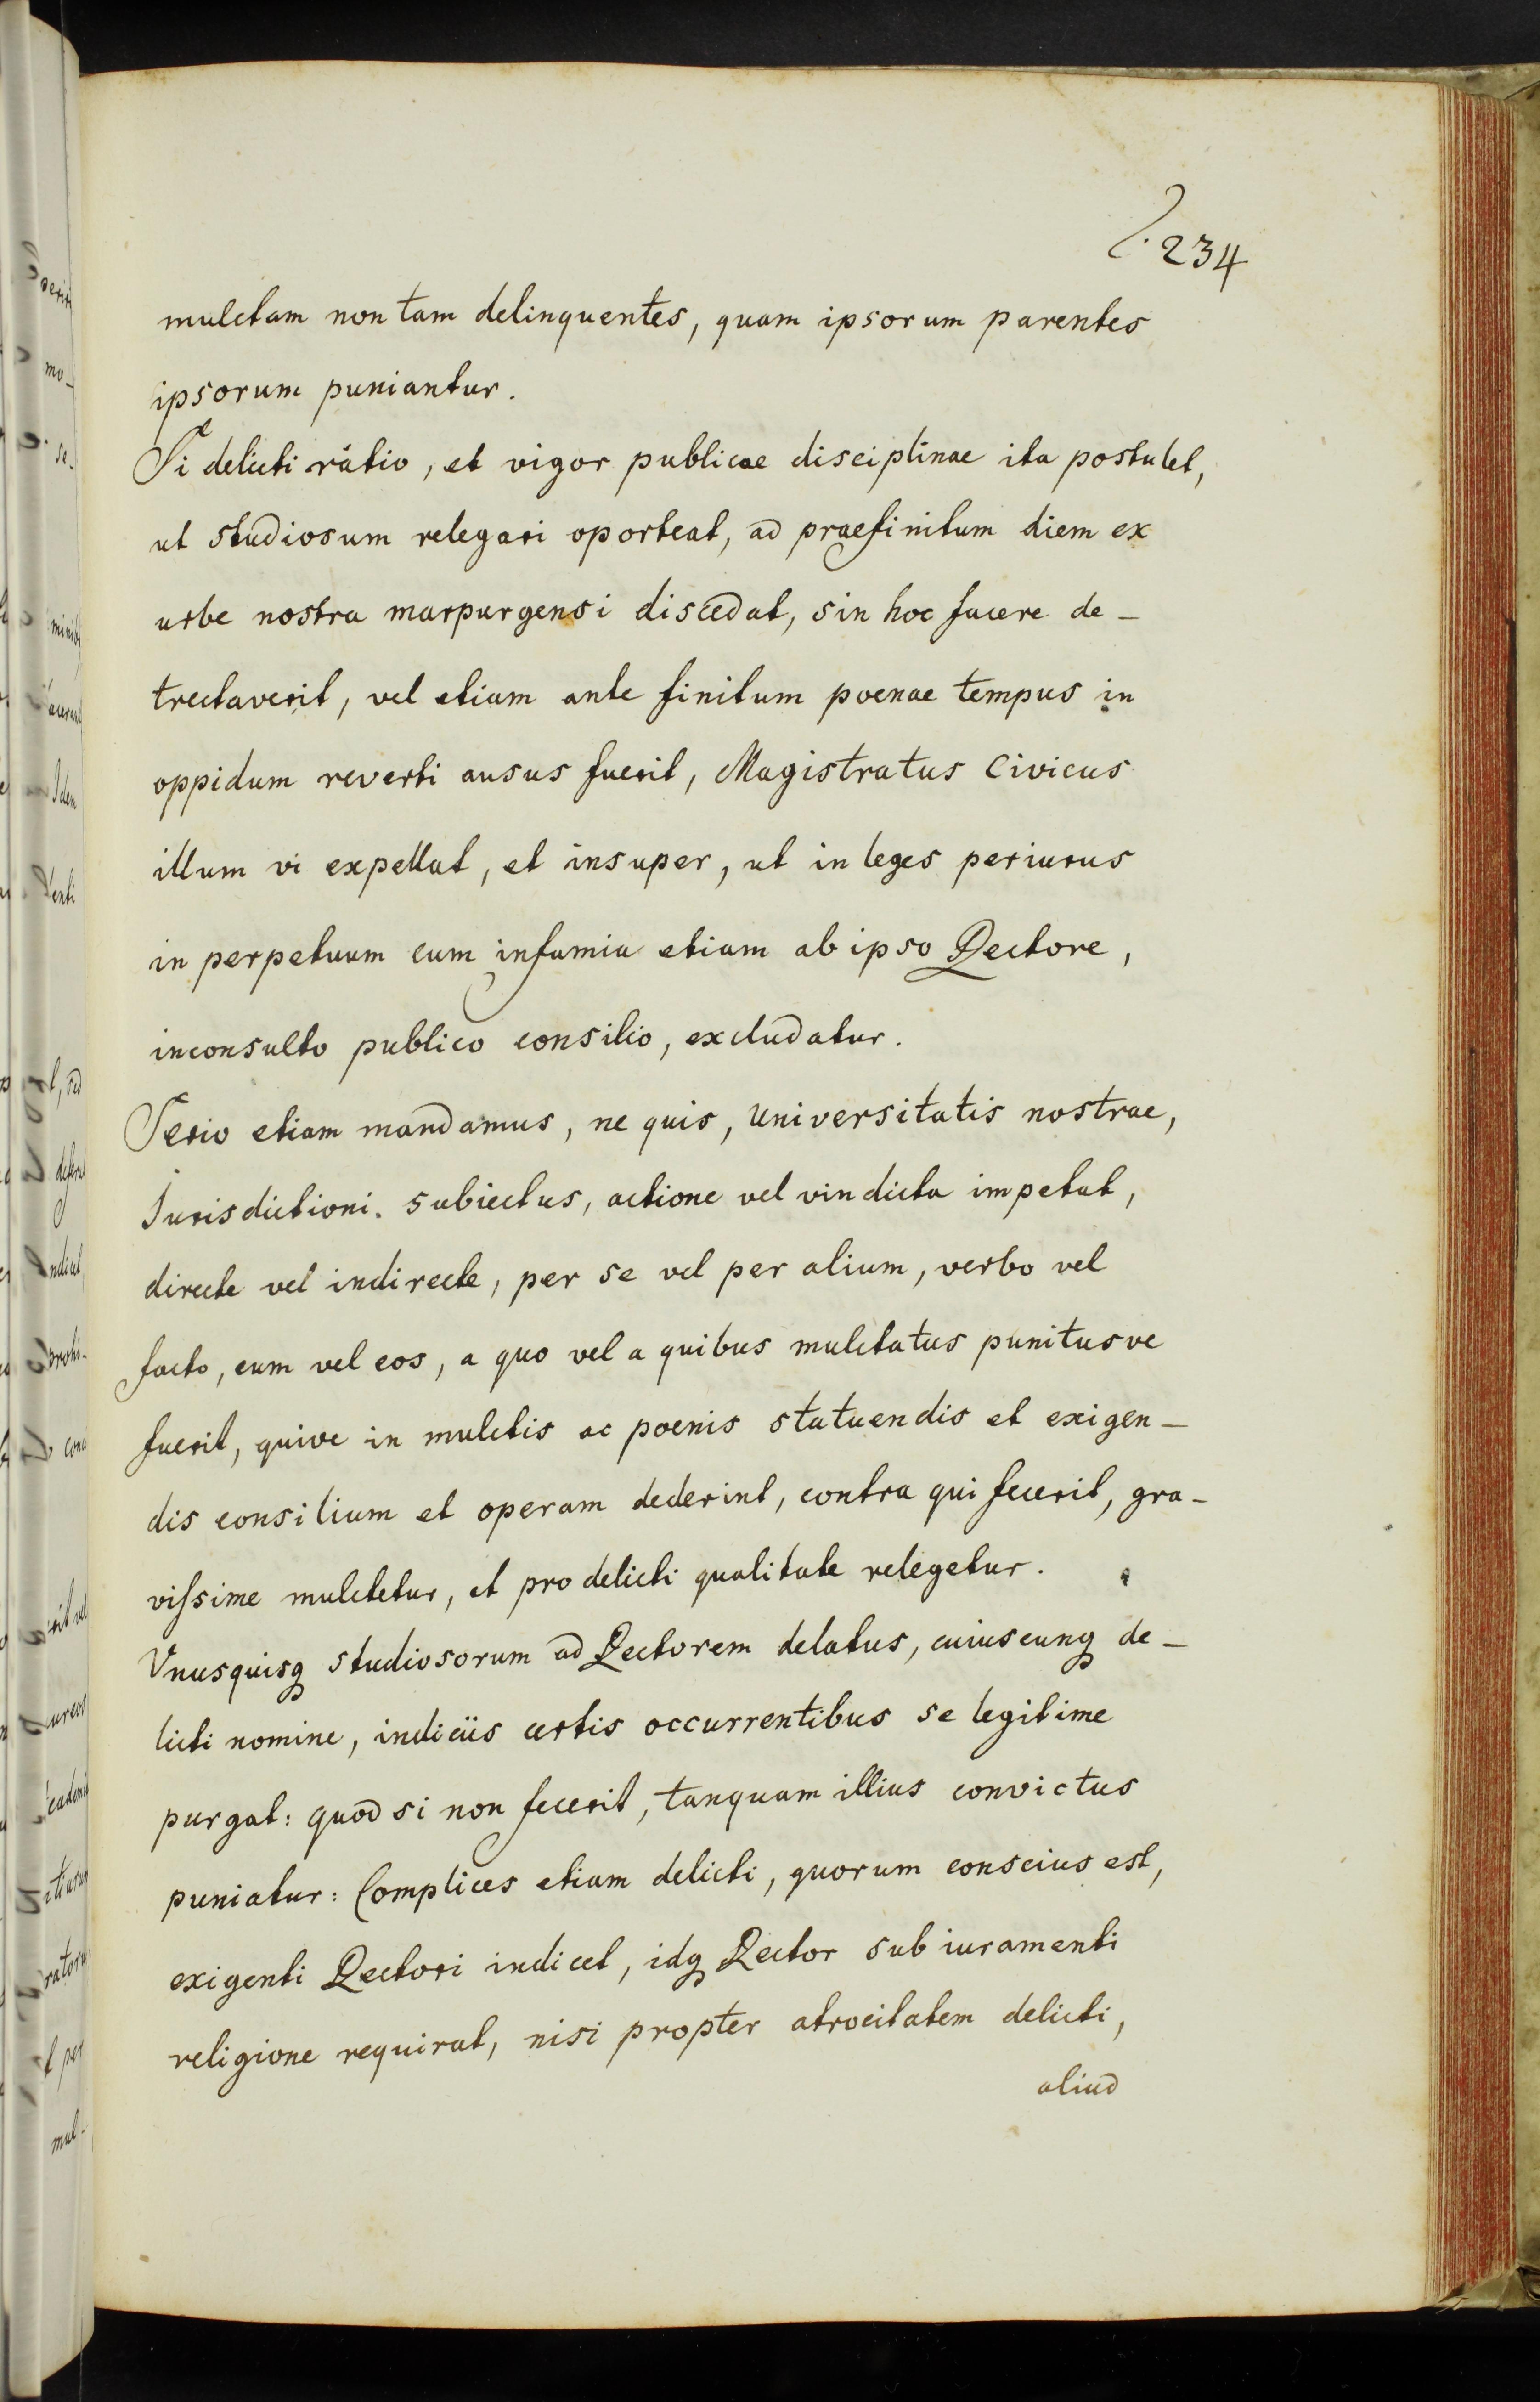 234
mulctam non tam delinquentes, quam ipsorum parentes
ipsorum puniantur.
Si delicti ratio, et vigor publicae disciplinae ita postulet,
ut studiosum relegari oporteat, ad praefinitum diem ex
urbe nostra marpurgensi discedat, sin hoc facere de-
trectaverit, vel etiam ante finitum poenae tempus in
oppidum reverti ausus fuerit, Magistratus Civicus
illum vi expellat, et insuper, ut in leges periurus
in perpetuum cum infamia etiam ab ipso Rectore,
inconsulto publico consilio, excludatur.
Serio etiam mandamus, ne quis, Universitatis nostrae,
Jurisdictioni. subiectus, actione vel vindicta impetat,
directe vel indirecte, per se vel per alium, verbo vel
facto, eum vel eos, a quo vel a quibus mulctatus punitusve
fuerit, quive in mulctis ac poenis statuendis et exigen-
dis consilium et operam dederint, contra qui fecerit, gra-
vissime mulctetur, et pro delicti qualitate relegetur.
Vnusquisq studiosorum ad Rectorem delatus, cuiuscunq de-
licti nomine, indiciis certis occurrentibus se legitime
purgat: quod si non fecerit, tanquam illius convictus
puniatur: Complices etiam delicti, quorum conscius est,
exigenti Rectori indicet, idq Rector sub iuramenti
religione requirat, nisi propter atrocitatem delicti,
aliud